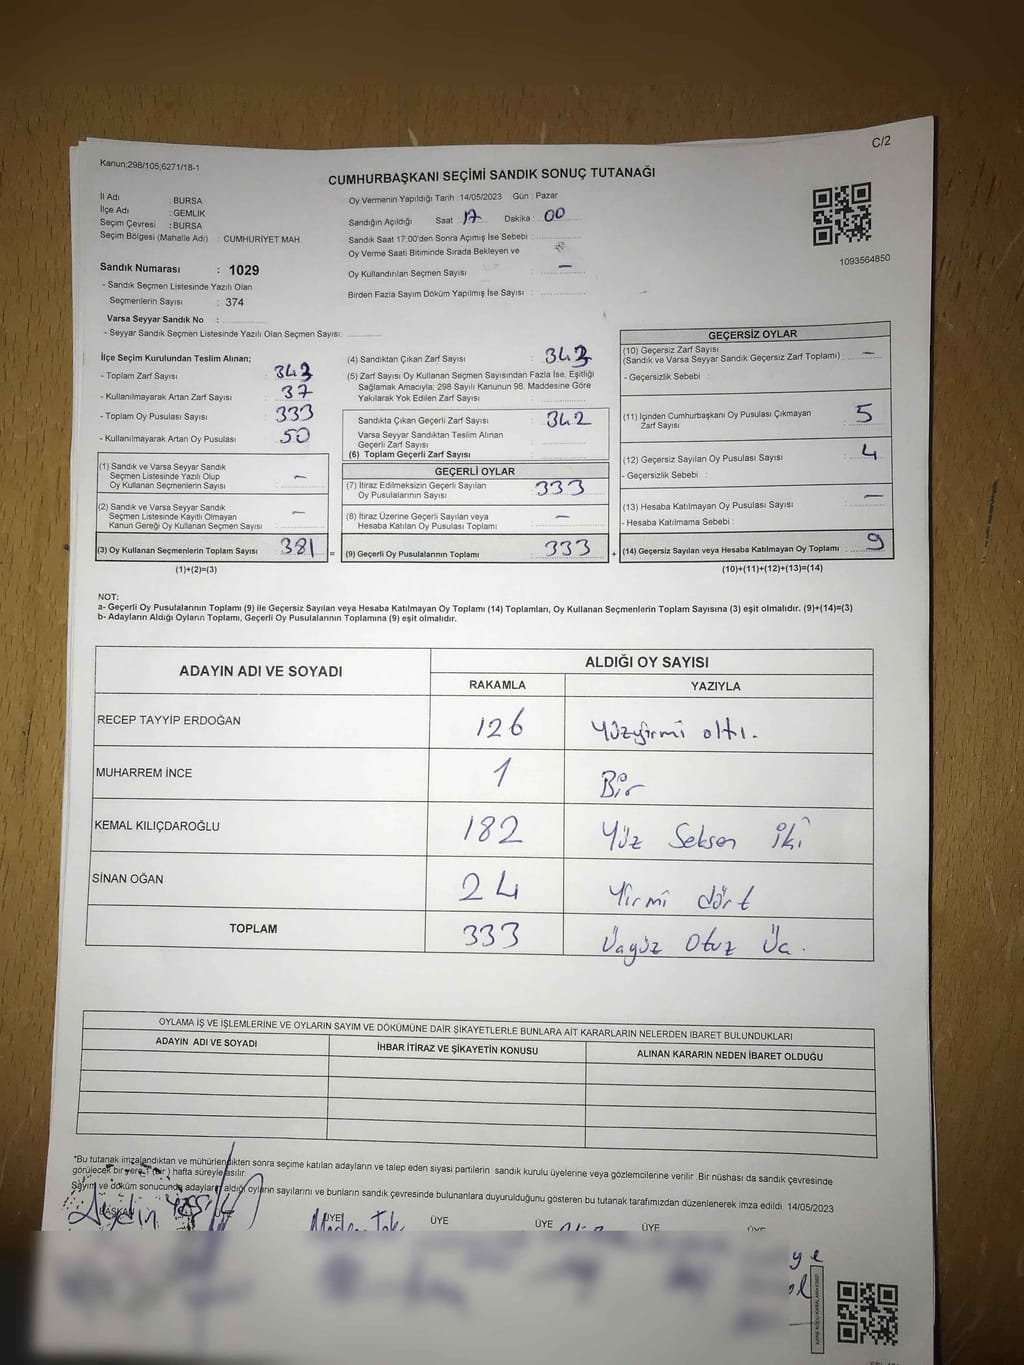 C/2
Kanun;298/105;6271/18-1
CUMHURBAŞKANI SEÇİMİ SANDIK SONUÇ TUTANAĞI
İl Adı : BURSA
İlçe Adı : GEMLİK
Seçim Çevresi : BURSA
Seçim Bölgesi (Mahalle Adı) : CUMHURİYET MAH
Oy Vermenin Yapıldığı Tarih :14/05/2023 Gün : Pazar
Sandığın Açıldığı Saat : 17 Dakika : 00
Sandık Saat 17:00'den Sonra Açımış İse Sebebi :
Oy Verme Saati Bitiminde Sırada Bekleyen ve
Oy Kullandırılan Seçmen Sayısı : —
Birden Fazla Sayım Döküm Yapılmış İse Sayısı :
1093564850
Sandık Numarası : 1029
- Sandık Seçmen Listesinde Yazılı Olan
Seçmenlerin Sayısı : 374
Varsa Seyyar Sandık No :
- Seyyar Sandık Seçmen Listesinde Yazılı Olan Seçmen Sayısı:
İlçe Seçim Kurulundan Teslim Alınan;
- Toplam Zarf Sayısı : 343
- Kullanılmayarak Artan Zarf Sayısı : 37
- Toplam Oy Pusulası Sayısı : 333
- Kullanılmayarak Artan Oy Pusulası : 50
(1) Sandık ve Varsa Seyyar Sandık
Seçmen Listesinde Yazılı Olup
Oy Kullanan Seçmenlerin Sayısı : —
(2) Sandık ve Varsa Seyyar Sandık
Seçmen Listesinde Kayıtlı Olmayan
Kanun Gereği Oy Kullanan Seçmen Sayısı : —
(3) Oy Kullanan Seçmenlerin Toplam Sayısı : 381 =
(1)+(2)=(3)
(4) Sandıktan Çıkan Zarf Sayısı : 343
(5) Zarf Sayısı Oy Kullanan Seçmen Sayısından Fazla İse, Eşitliği
Sağlamak Amacıyla; 298 Sayılı Kanunun 98. Maddesine Göre
Yakılarak Yok Edilen Zarf Sayısı :
Sandıkta Çıkan Geçerli Zarf Sayısı : 342
Varsa Seyyar Sandıktan Teslim Alınan
Geçerli Zarf Sayısı :
(6) Toplam Geçerli Zarf Sayısı :
GEÇERLİ OYLAR
(7) İtiraz Edilmeksizin Geçerli Sayılan
Oy Pusulalarının Sayısı : 333
(8) İtiraz Üzerine Geçerli Sayılan veya
Hesaba Katılan Oy Pusulası Toplamı : —
(9) Geçerli Oy Pusulalarının Toplamı : 333 +
GEÇERSİZ OYLAR
(10) Geçersiz Zarf Sayısı
(Sandık ve Varsa Seyyar Sandık Geçersiz Zarf Toplamı) : —
- Geçersizlik Sebebi :
(11) İçinden Cumhurbaşkanı Oy Pusulası Çıkmayan
Zarf Sayısı : 5
(12) Geçersiz Sayılan Oy Pusulası Sayısı : 4
- Geçersizlik Sebebi :
(13) Hesaba Katılmayan Oy Pusulası Sayısı : —
- Hesaba Katılmama Sebebi :
(14) Geçersiz Sayılan veya Hesaba Katılmayan Oy Toplamı : 9
(10)+(11)+(12)+(13)=(14)
NOT:
a- Geçerli Oy Pusulalarının Toplamı (9) ile Geçersiz Sayılan veya Hesaba Katılmayan Oy Toplamı (14) Toplamları, Oy Kullanan Seçmenlerin Toplam Sayısına (3) eşit olmalıdır. (9)+(14)=(3)
b- Adayların Aldığı Oyların Toplamı, Geçerli Oy Pusulalarının Toplamına (9) eşit olmalıdır.
ADAYIN ADI VE SOYADI ALDIĞI OY SAYISI
RAKAMLA YAZIYLA
RECEP TAYYİP ERDOĞAN 126 Yüzyirmi altı.
MUHARREM İNCE 1 Bir
KEMAL KILIÇDAROĞLU 182 Yüz Seksen iki
SİNAN OĞAN 24 Yirmi dört
TOPLAM 333 Üçyüz Otuz Üç.
OYLAMA İŞ VE İŞLEMLERİNE VE OYLARIN SAYIM VE DÖKÜMÜNE DAİR ŞİKAYETLERLE BUNLARA AİT KARARLARIN NELERDEN İBARET BULUNDUKLARI
ADAYIN ADI VE SOYADI İHBAR İTİRAZ VE ŞİKAYETİN KONUSU ALINAN KARARIN NEDEN İBARET OLDUĞU
*Bu tutanak imzalandıktan ve mühürlendikten sonra seçime katılan adayların ve talep eden siyasi partilerin sandık kurulu üyelerine veya gözlemcilerine verilir. Bir nüshası da sandık çevresinde
görülecek bir yere 1 (bir) hafta süreyle asılır.
Sayım ve döküm sonucunda adayların aldığı oyların sayılarını ve bunların sandık çevresinde bulunanlara duyurulduğunu gösteren bu tutanak tarafımızdan düzenlenerek imza edildi. 14/05/2023
BAŞKAN ÜYE ÜYE ÜYE ÜYE ÜYE
Aydın